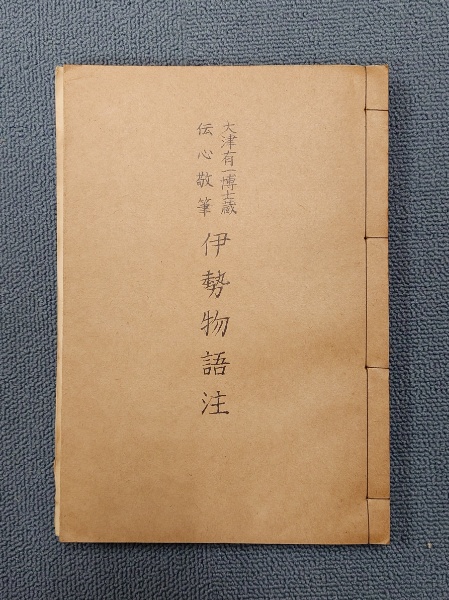 大津有一博士蔵
伝心敬筆
伊勢物語注